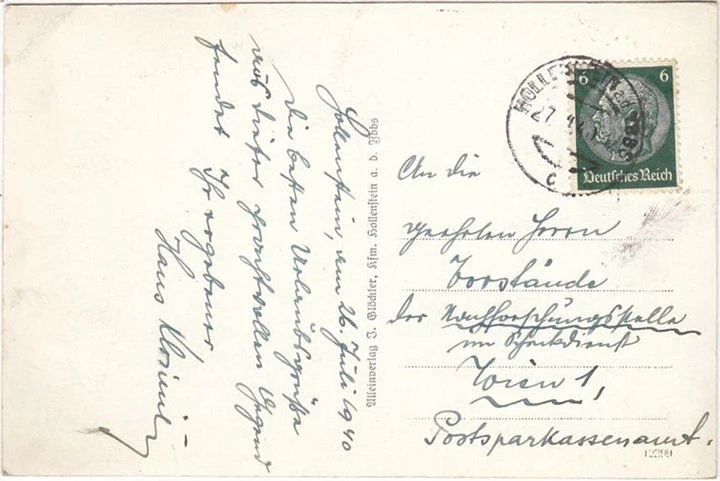 Hollenstein, am 26. Juli 1940
Die besten Urlaubsgrüße
aus dieser prachtvollen Gegend
sendet Ihr ergebener
Hans
Alleinverlag J. Glöckler, Kfm. Hollenstein a. d. Ybbs
6 6
Deutsches Reich
HOLLENSTEIN a.d. YBBS
27.
c
An die
geehrten Herrn
Vorstände
der Nachforschungsstelle
im Scheckdienst
Wien 1,
Postsparkassenamt.
12299